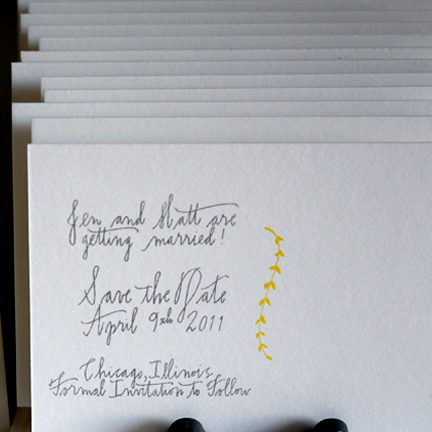 Jen and Matt are
getting married!
Save the Date
April 9th 2011
Chicago, Illinois
Formal Invitation to Follow